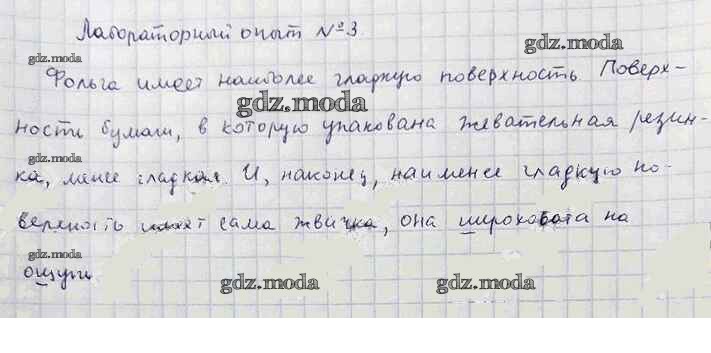 Лабораторный опыт №3.
gdz.moda
gdz.moda
Фольга имеет наиболее гладкую поверхность. Поверх-
gdz.moda
ность бумаги, в которую упакована жевательная резин-
gdz.moda
ка, менее гладкая. И, наконец, наименее гладкую по-
gdz.moda
верхность имеет сама жвачка, она шероховата на
gdz.moda
ощупь
gdz.moda
gdz.moda